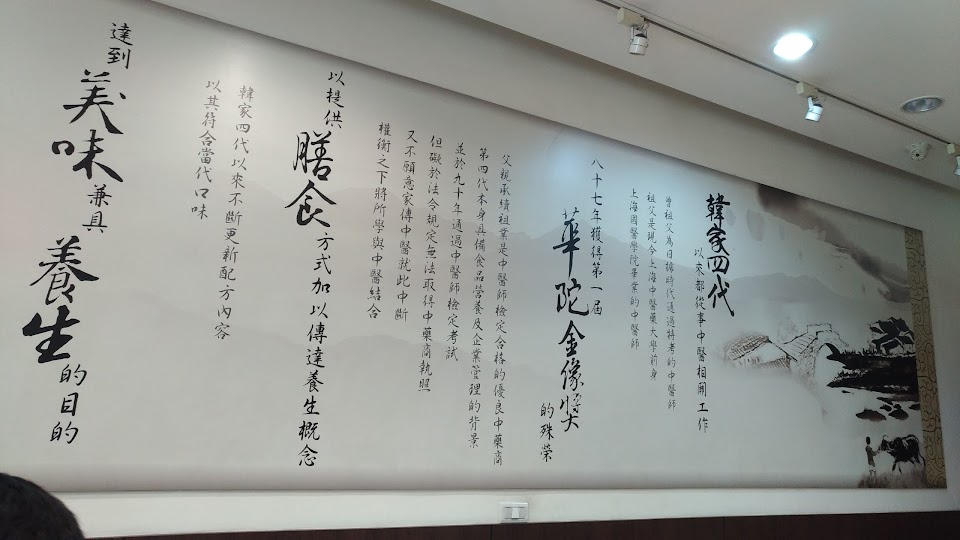 韓家四代
以來都從事中醫相關工作
曾祖父為日據時代通過特考的中醫師
祖父是現今上海中醫藥大學前身
上海國醫學院畢業的中醫師
八十七年獲得第一屆
華陀金像獎
的殊榮
父親承續祖業是中醫師檢定合格的優良中藥商
第四代本身具備食品營養及企業管理的背景
並於九十年通過中醫師檢定考試
但礙於法令規定無法取得中藥商執照
又不願意家傳中醫就此中斷
權衡之下將所學與中醫結合
以提供
膳食
方式加以傳達養生概念
韓家四代以來不斷更新配方內容
以其符合當代口味
達到
美味
兼具
養生
的目的